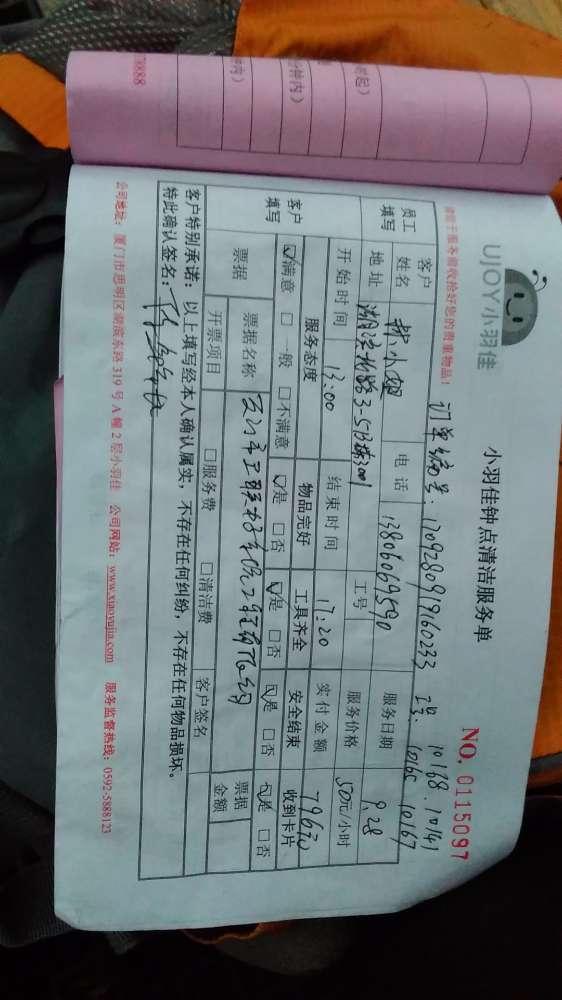 UJOY小羽佳
小羽佳钟点清洁服务单
NO. 0115097
请您于服务前收拾好您的贵重物品!
订单编号: 1709280919160233 工号: 10138. 10141
10165 10167
员工填写
客户姓名
小姐
电话
13806069590
服务日期
9.28
地址
3-5B栋301
工号
服务价格
50元/小时
开始时间
13:00
结束时间
17:20
实付金额
796元
客户填写
服务态度
物品完好
工具齐全
安全结束
收到卡片
☑满意 □一般 □不满意
☑是 □否
☑是 □否
☑是 □否
☑是 □否
票据
票据名称
票据金额
开票项目
□服务费 □清洁费
客户签名
客户特别承诺:以上填写经本人确认属实,不存在任何纠纷,不存在任何物品损坏。
特此确认签名:
公司地址:厦门市思明区湖滨东路 319 号 A 幢 2 层小羽佳 公司网站:www.xiaoyujia.com 服务监督热线:0592-5888123
起)
钟内)
钟内)
78888